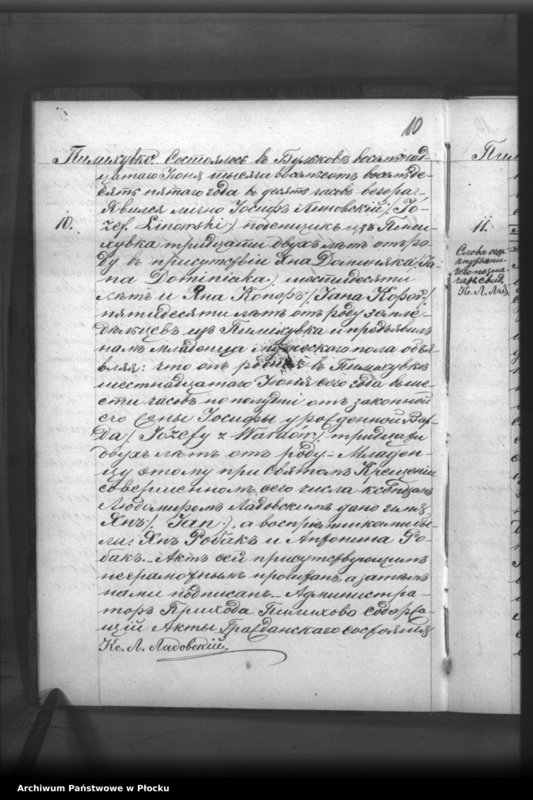 10
Пилихувко. Состоялось въ Бульковѣ восемнад-
цатаго Іюня тысяча восемьсотъ восемьде-
сятъ пятаго года въ десять часовъ вечера
10. Явился лично Іосифъ Линовскій /Jó-
zef Linowski/ поденщикъ изъ Пили-
хувка тридцати двухъ лѣтъ отъ ро-
ду въ присутствіи Яна Доминяка /Ja-
na Dominiaka/ шестидесяти
лѣтъ и Яна Копоръ /Jana Kopoń/
пятидесяти лѣтъ отъ роду земле-
дѣльцевъ изъ Пилихувка и предъявилъ
намъ младенца мужескаго пола объя-
вляя: что онъ родился въ Пилихувкѣ
шестнадцатаго Іюня сего года въ ше-
сти часовъ по полудни отъ законной
его жены Іосифы урожденной Вар-
да /Józefy z Wardów/ тридцати
двухъ лѣтъ отъ роду. Младен-
цу этому при Святомъ Крещеніи
совершенномъ сего числа ксёндзомъ
Любомиромъ Ладовскимъ дано имя
Янъ /Jan/, а воспріемниками бы-
ли: Янъ Робакъ и Антонина Ро-
бакъ. Актъ сей присутствующимъ
неграмотнымъ прочитанъ, а затѣмъ
нами подписанъ. Администра-
торъ Прихода Пилихово содержа-
щій Акты Гражданскаго состоянія
Кс. Л. Ладовскій
11.
Кс. Л. Лад
Archiwum Państwowe w Płocku